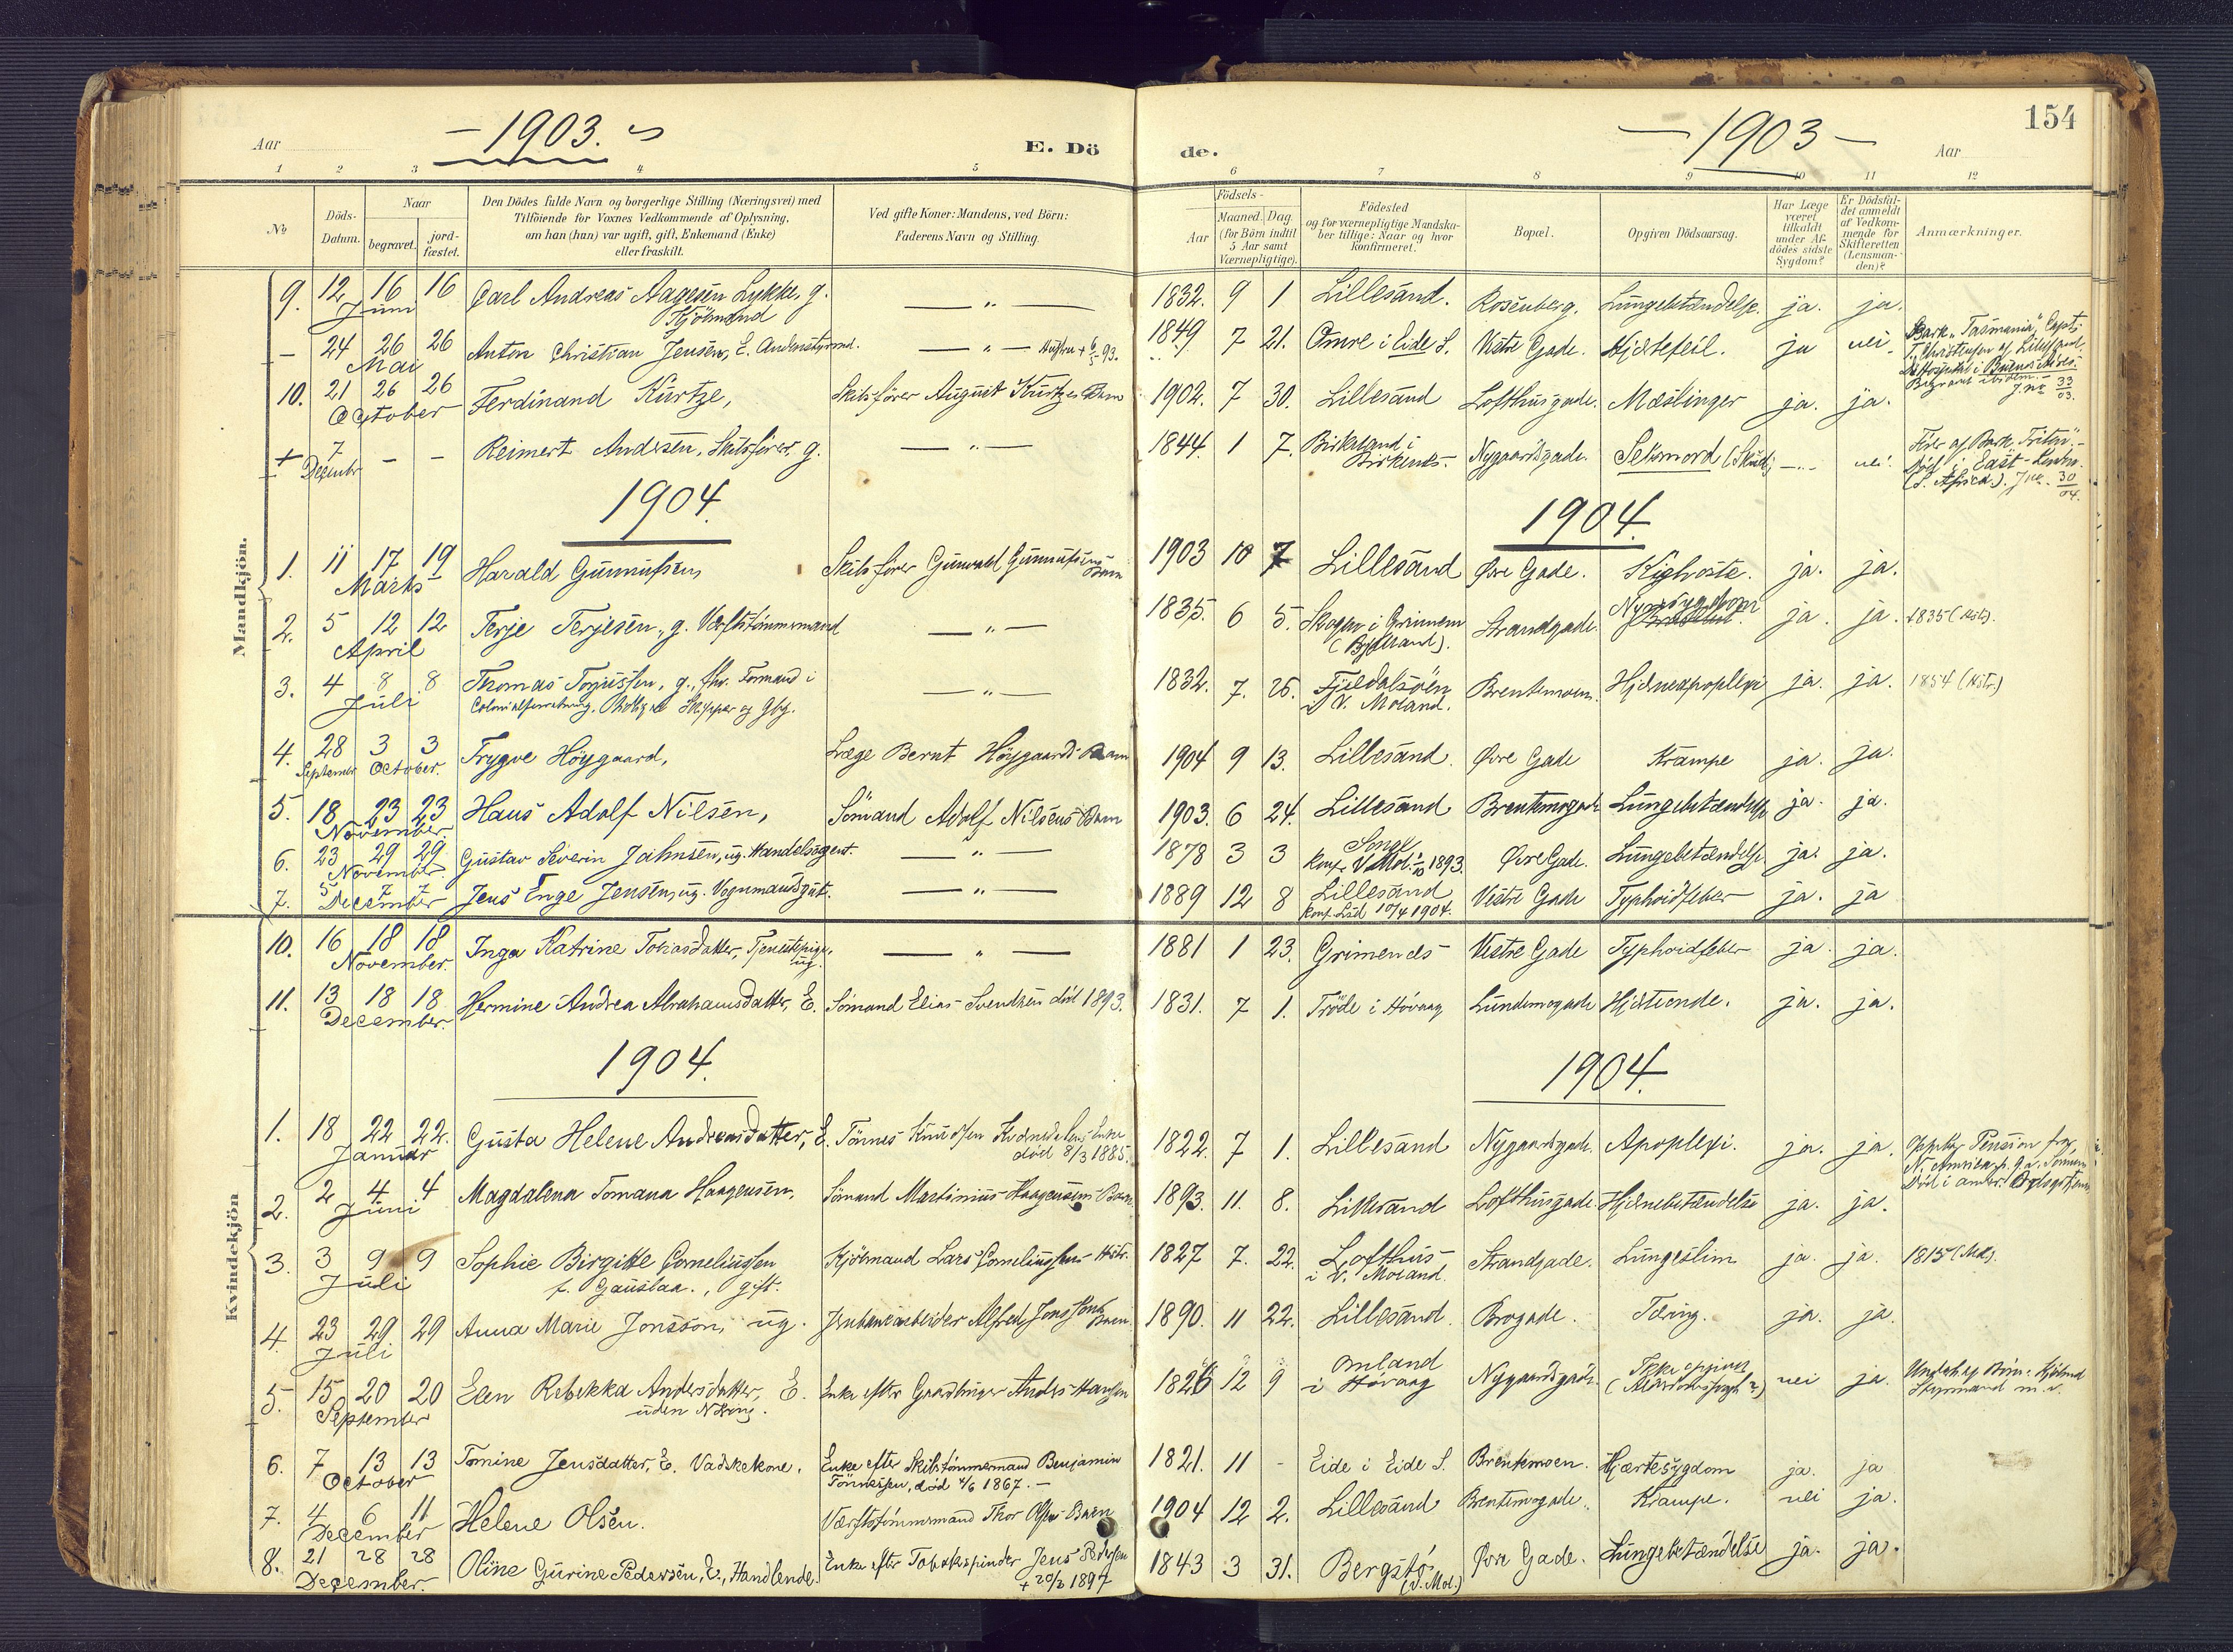 154
Aar - 1903. -
E. Dö de.
- 1903 - Aar
1 2 3 4 5 6 7 8 9 10 11 12
No
Döds-Datum.
Naar
begravet. jord-fæstet.
Den Dödes fulde Navn og borgerlige Stilling (Næringsvei) med
Tilföiende for Voxnes Vedkommende af Oplysning,
om han (hun) var ugift, gift, Enkemand (Enke)
eller fraskilt.
Ved gifte Koner: Mandens, ved Börn:
Faderens Navn og Stilling.
Födsels-
Aar Maaned. Dag.
(for Börn indtil
5 Aar samt
Værnepligtige).
Födested
og for værnepligtige Mandska-
ber tillige: Naar og hvor
konfirmeret.
Bopæl.
Opgiven Dödsaarsag.
Har Læge
været
tilkaldt
under Af-
dödes sidste
Sygdom?
Er Dödsfal-
det anmeldt
af Vedkom-
mende for
Skifteretten
(Lensman-
den)?
Anmærkninger.
Mandkjön.
9. 12 16 16 Carl Andreas Aagesen Lykke, g. — " — 1832. 9 1 Lillesand. Rosenberg. Lungebetændelse. ja. ja.
Juni Kjöbmand
- 24 26 26 Anton Christian Jensen, E. Andenstyrmd. — " — Hustru + 93. 1849 7 21. Omre i Eide S. Vestre Gade. Hjertefeil. ja nei Bark "Tasmania", Capt.
Mai T. Christensen af Lillesand
Hospital i Buenos Aires.
Begravet ibidem. J. no 33/03.
10. 21 26 26 Ferdinand Kurtze, Skibsförer August Kurtzes Barn 1902. 7 30. Lillesand Lofthusgade. Mæslinger ja. ja.
October
+ 7 - - Reimert Andersen, Skibsförer. g. — " — 1844. 1 7. Birkeland i Birkenes. Nygaardsgade. Selvmord (Skud) — " — nei. Förer af Bark "Triton".
Decembr Död i East-London.
(S. Africa). J. no. 30/04.
1904. 1904.
1. 11 17 19 Harald Gunnufsen, Skibsförer Gunvald Gunnufsens Barn 1903 10 7 Lillesand Øvre Gade. Kighoste. ja. ja.
Marts
2. 5 12 12 Terje Terjesen, g. Værftstömmermand — " — 1835. 6 5. Skogen i Grimenes Strandgade. Nyresygdom ja. ja. 1835 (Mst).
April
3. 4 8 8 Thomas Torjussen, g., fhv. Formand i — " — 1832. 7. 25. Fjeldalsöen Brentemoen. Hjerneapoplexi ja. ja. 1854 (Mstr.)
Juli Skipper og Gbg. i V. Moland.
4. 28 3 3 Trygve Höygaard, Læge Bernt Höygaards Barn 1904 9 13. Lillesand. Øvre Gade Krampe ja. ja.
September October.
5. 18 23 23 Hans Adolf Nilsen, Sömand Adolf Nilsens Barn 1903. 6 24. Lillesand Brentemogade Lungebetændelse ja. ja.
November.
6. 23 29 29 Gustav Severin Jahnsen, ug. Handelsagent. — " — 1878 3 3 Songe Øvre Gade. Lungebetændelse. ja. ja.
November. Konf. V. Mol. 1893.
7. 5 7 7 Jens Enge Jensen, ug. Vognmandsgut. — " — 1889 12 8 Lillesand Vestre Gade Typhoidfeber ja. ja
December Konf. Lsd 10/4 1904.
Kvindekjön
10. 16 18 18 Inga Katrine Tobiasdatter, Tjenestepige, ug. — " — 1881 1 23. Grimenes Vestre Gade Typhoidfeber ja. ja.
November.
11. 13 18 18 Hermine Andrea Abrahamsdatter, E. Sömand Elias Svendsen död 1893. 1831. 7 1. Tröde i Hövaag Lundemogade Hjerteonde. ja. ja.
December.
1904. 1904.
1. 18 22 22. Gusta Helene Andreasdatter, E. Tönnes Knudsen Enke 1822. 7 1. Lillesand Nygaardsgade. Apoplexi. ja. ja. Pension fra
Januar död 8/3 1885. N. Amerika
2. 2 4 4 Magdalena Tomana Haagensen. Sömand Martinius Haagensens Barn. 1893. 11. 8. Lillesand Lofthusgade. Hjernebetændelse ja. ja.
Juni
3. 3 9 9 Sophie Birgitte Corneliussen Kjöbmand Lars Corneliussens Hustr. 1827 7. 22. Lofthus Strandgade. Lungeslim ja. ja. 1815 (Mdl).
Juli f. Gauslaa., gift. i V. Moland.
4. 23 29 29 Anna Marie Jonsson, ug. Jernbanearbeider Alfred Jonssons Barn. 1890. 11 22. Lillesand. Brogade. Tæring. ja. ja.
Juli
5. 15 20 20 Elen Rebekka Andersdatter, E. Enke efter Gaardbruger Anders Hansen 1826 12 9 Omland Nygaardsgade. Ikke opgivet nei ja. Underh. af Börn: Kjöbmd
September uden Næring. i Hövaag Styrmand m. v.
6. 7 13 13 Tomine Jensdatter, E. Vadskekone. Enke efter Skibstömmermand Benjamin 1821. 11 - Eide i Eide S. Brentemoen. Hjærtesygdom ja. ja
October Tönnessen, död 4/6 1867. -
7. 4 6 11 Helene Olsen. Værftstömmermand Thor Olsens Barn 1904 12 2. Lillesand Brentemogade. Krampe. nei ja.
December
8. 21 28 28 Oline Gurine Pedersen, E., Handlende. Enke efter Tobakspinder Jens Pedersen 1843 3 31. Bergstö Øvre Gade. Lungebetændelse ja. ja.
December. + 20/2 1897 (V. Mol.)